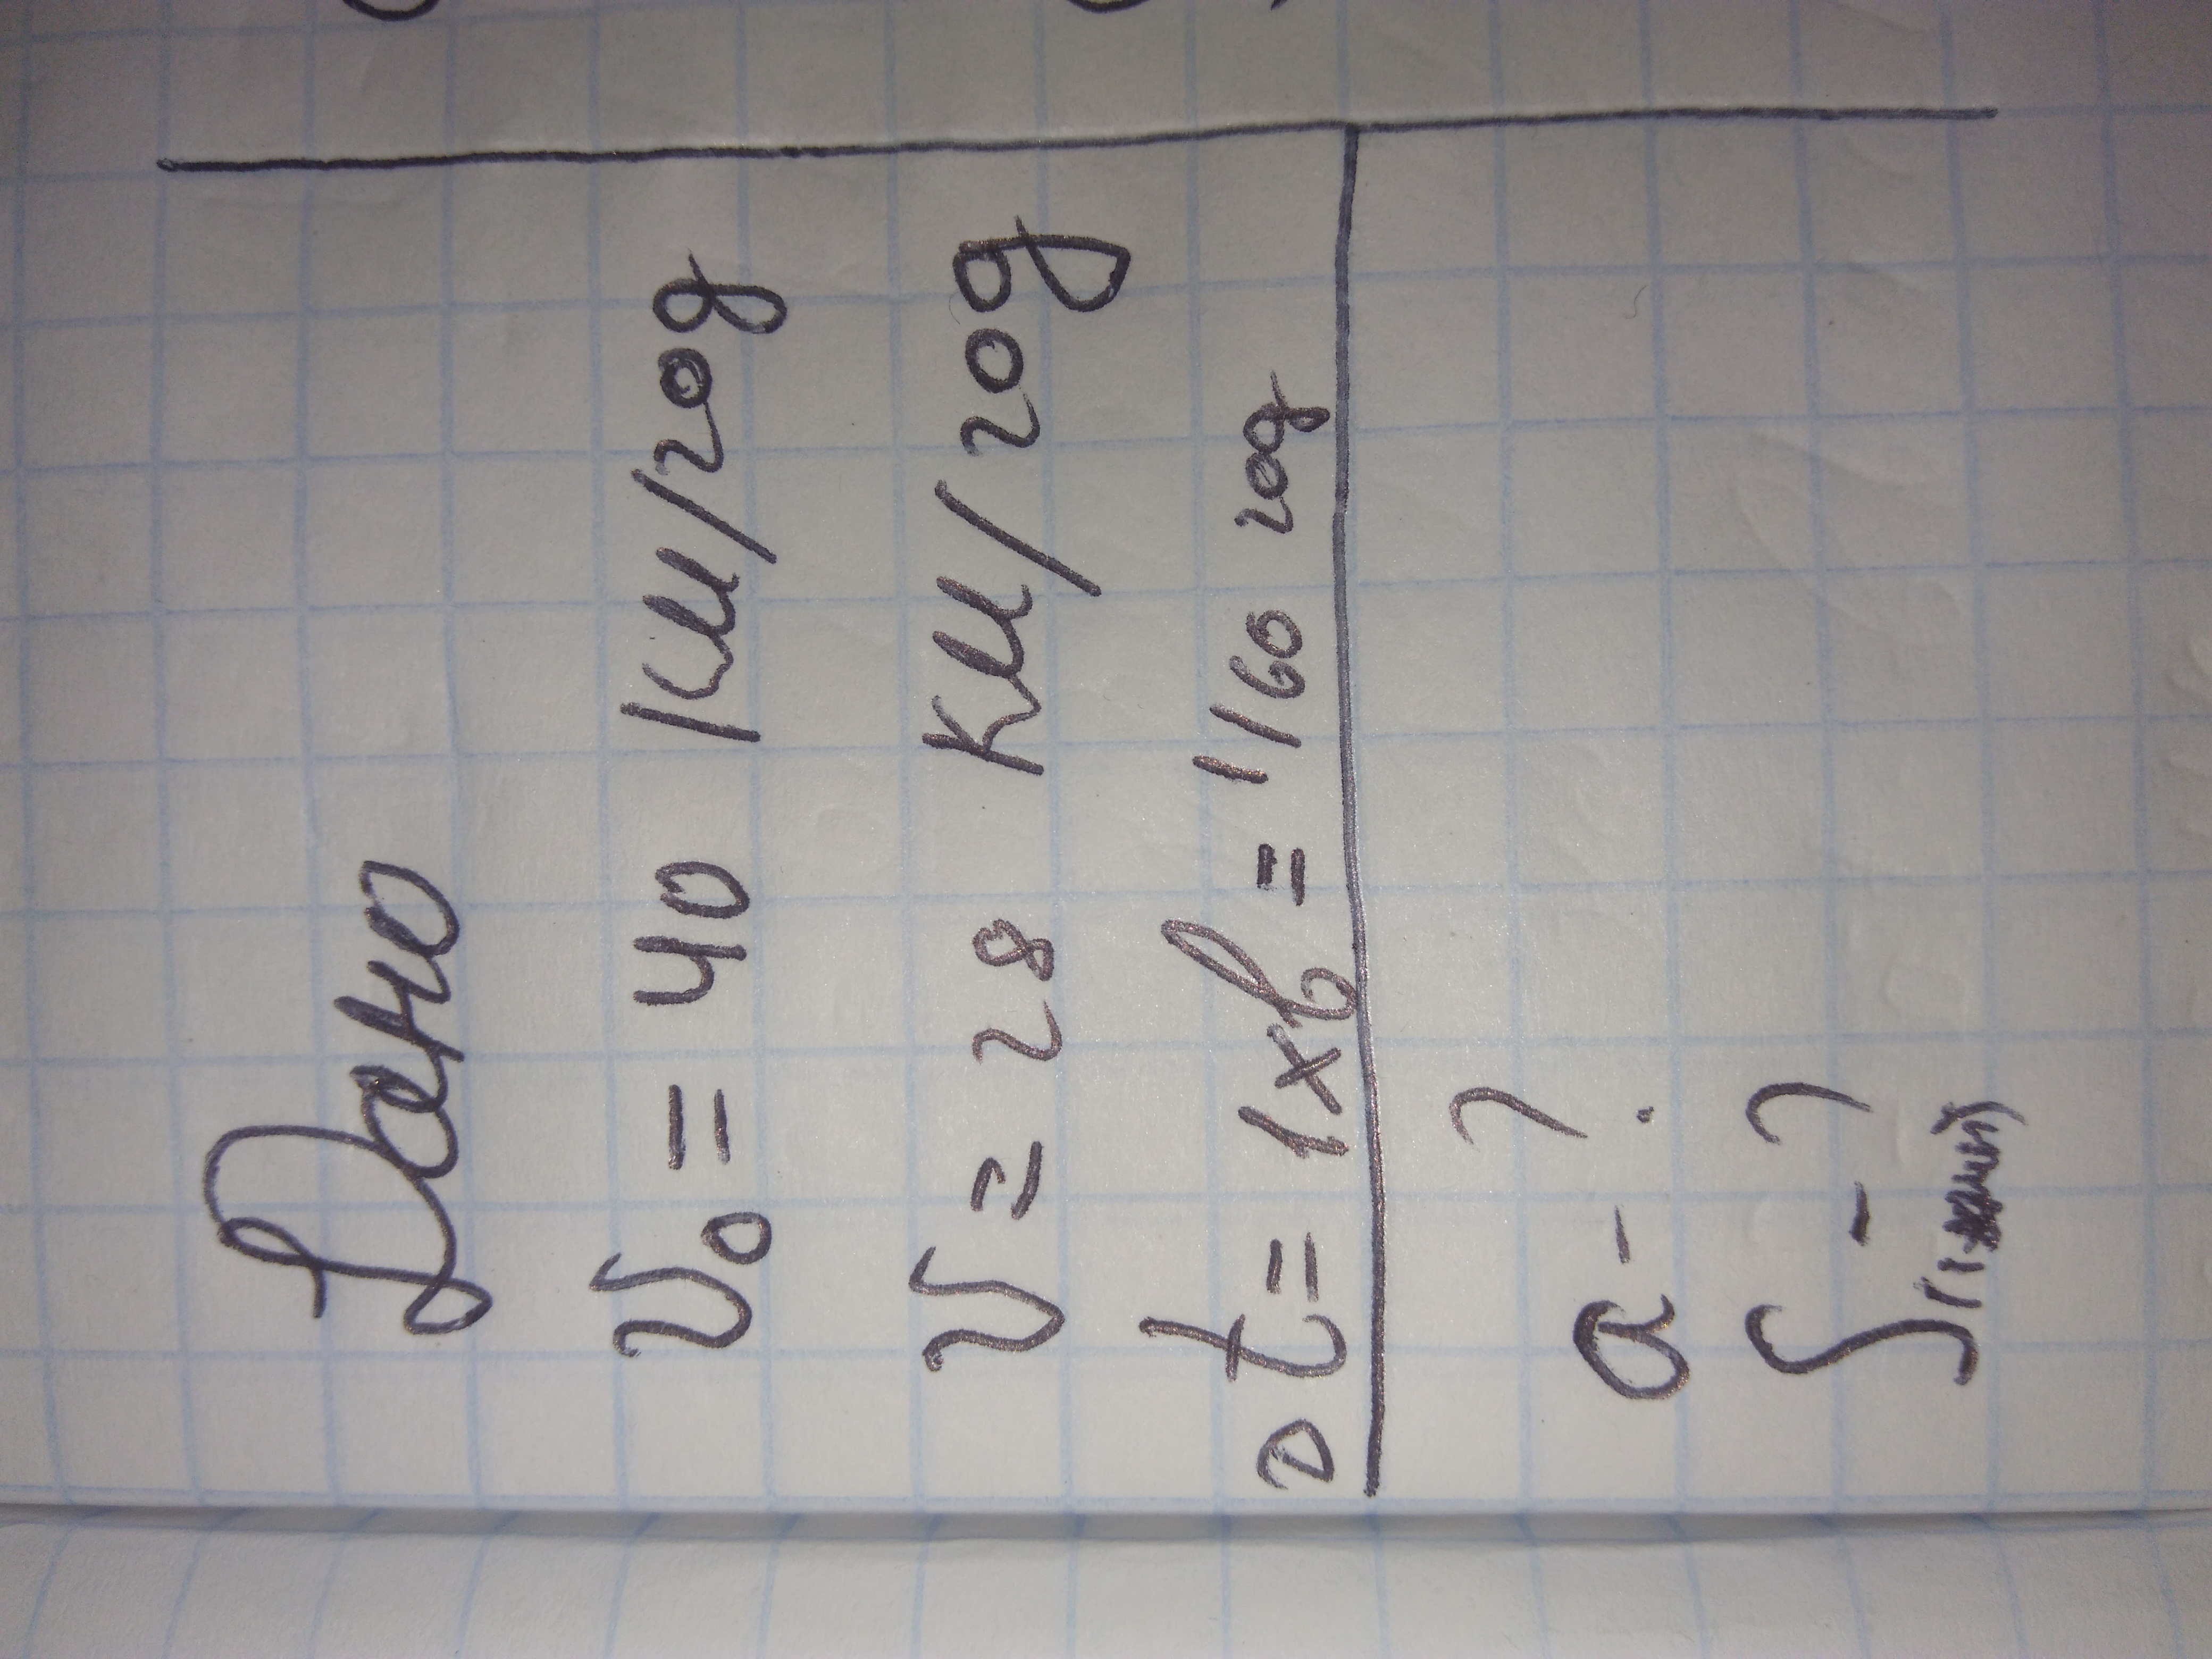 Дано
υ₀ = 40 км/год
υ = 28 км/год
Δt = 1хв = 1/60 год
a - ?
S - ?